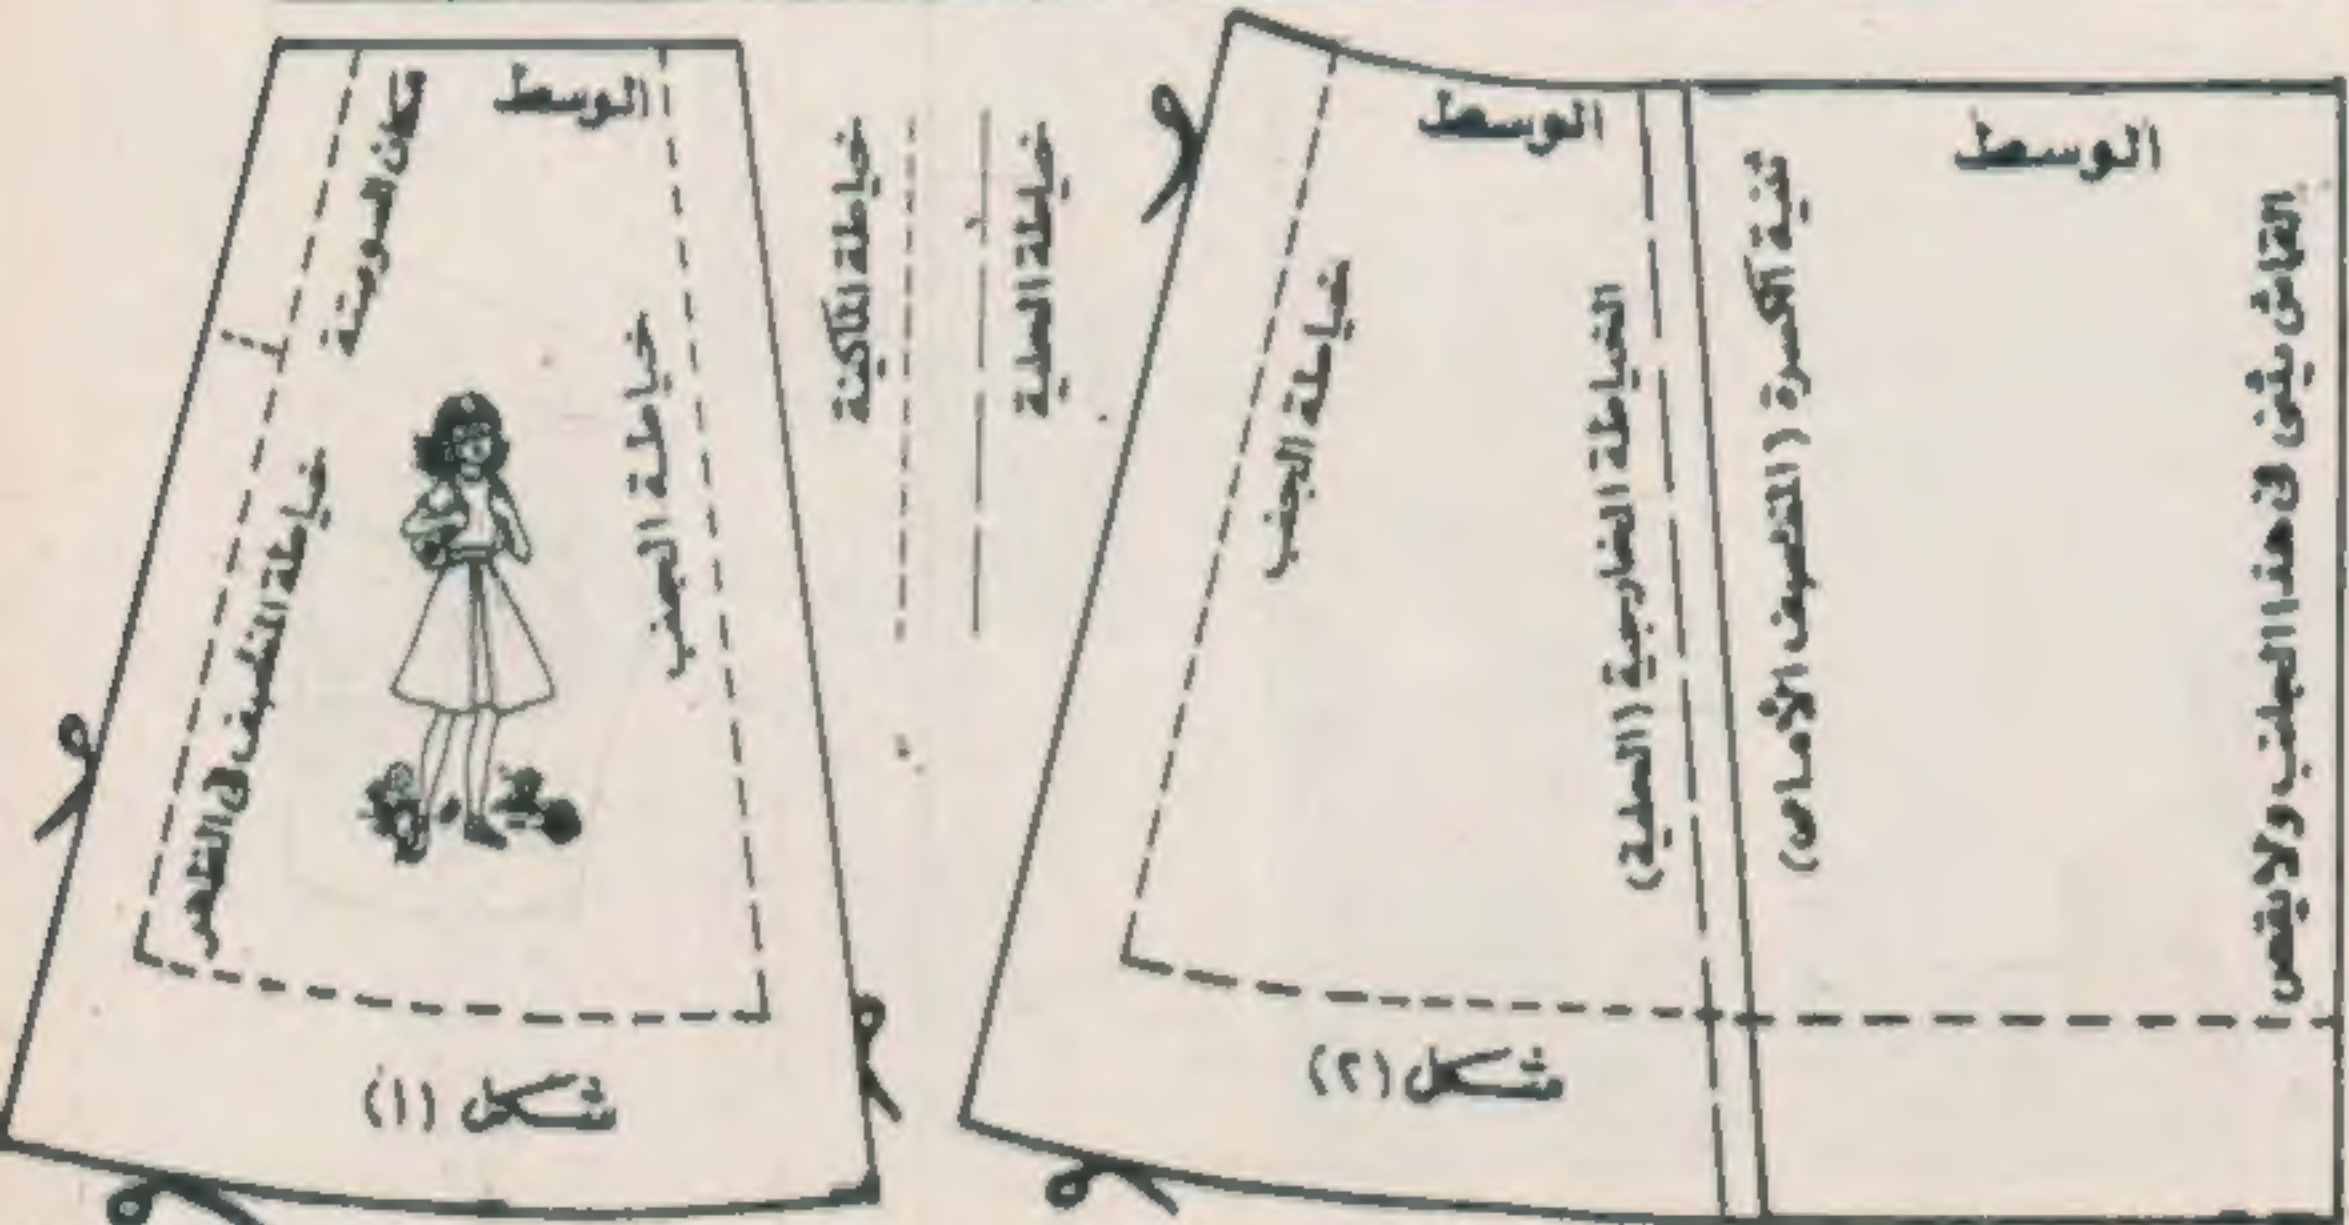 الوسط
مكان السوستة
خياطة الجنب
خياطة النصف فى الظهر
شكل (١)
خياطة الماكينة
خياطة الحلية
الوسط
خياطة الجنب
الخياطة الخارجية (الحلية)
ثنية الكسرة (النصف الأمامى)
الوسط
القماش يثنى فى هذا الجانب ولا يقص
شكل (٢)